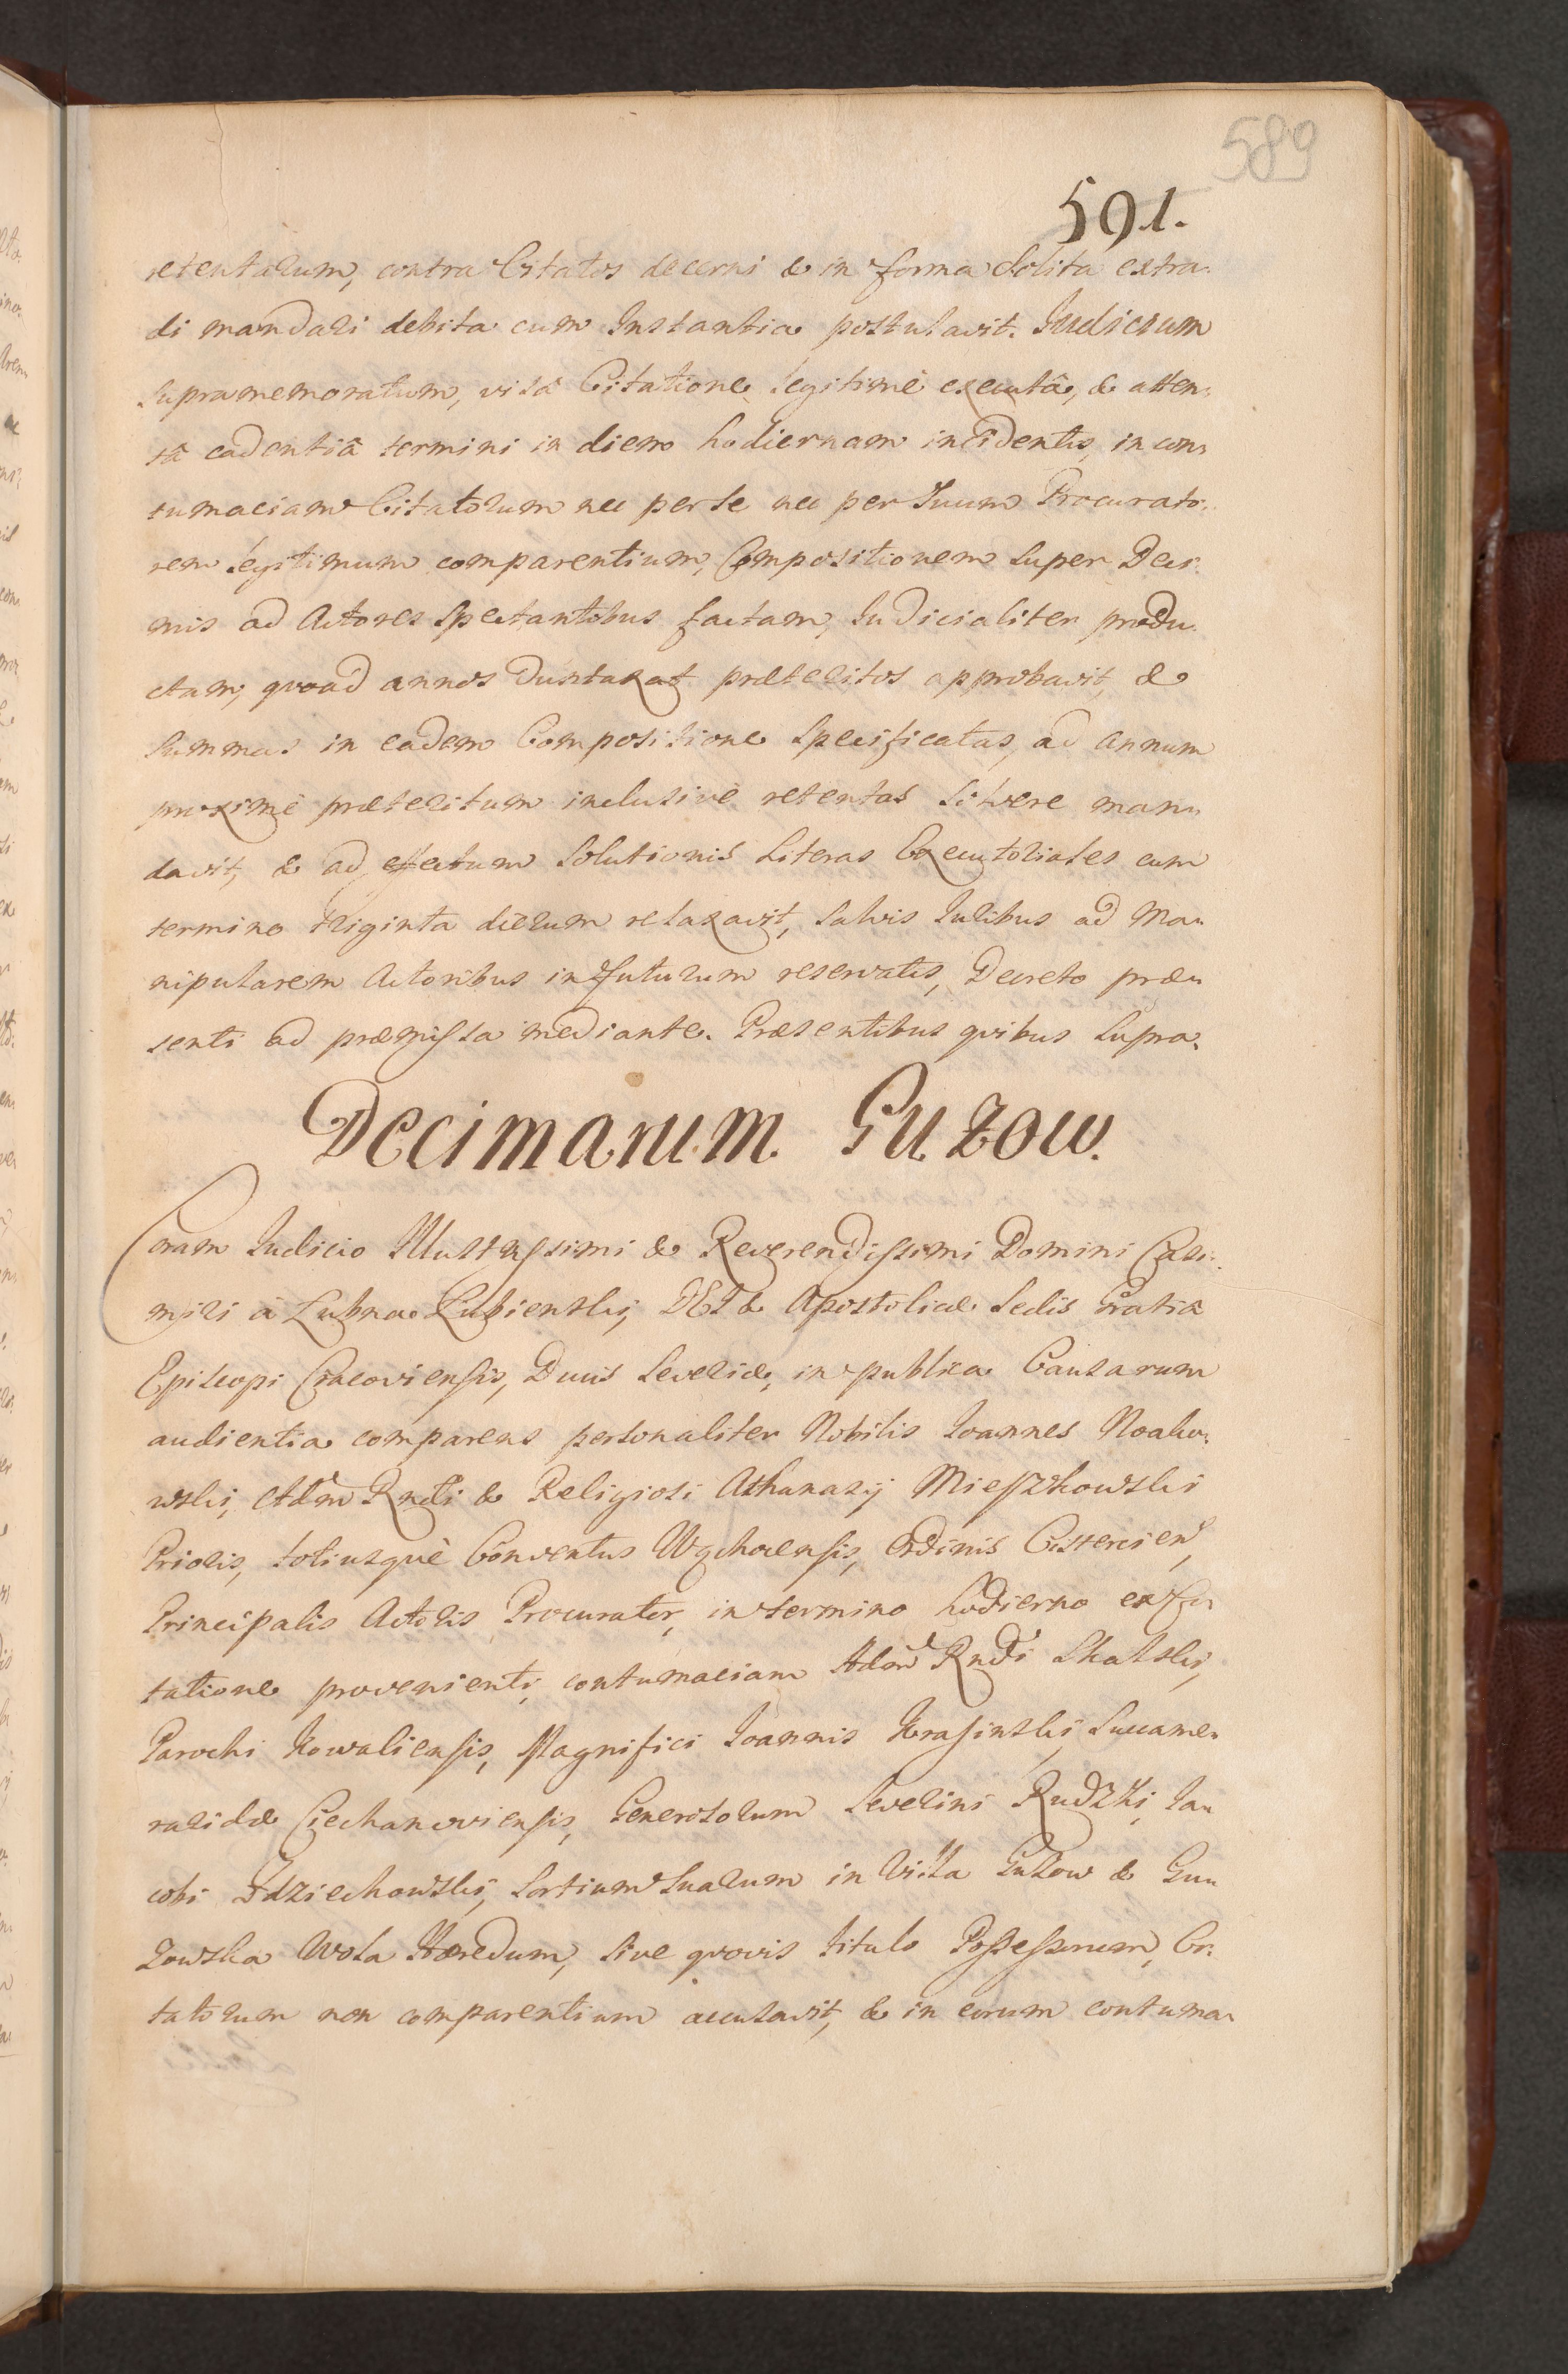 589
591.
retentarum, contra Citatos decerni & in forma Solita extra-
di mandari debita cum Instantia postulavit. Judicium
Supramemoratum, visâ Citatione legitimè executâ, & atten-
tâ cadentiâ termini in diem hodiernam incidentis, in con-
tumaciam Citatorum nec per se nec per Suum Procurato-
rem legitimum comparentium, Compositionem Super Deci-
mis ad Actores Spectantibus factam, Judicialiter produ-
ctam, qvoad annos duntaxat præteritos approbavit, &
Summas in eadem Compositione Specificatas, ad annum
proximè præteritum inclusivè retentas Solvere man-
davit, & ad effectum Solutionis Literas Executoriales cum
termino triginta dierum relaxavit, Salvis Juribus ad Ma-
nipularem Actoribus in futurum reservatis, Decreto præ-
senti ad præmissa mediante. Præsentibus qvibus Supra.
Decimarum Guzow.
Coram Judicio Illustrissimi & Reverendissimi Domini Casi-
miri à Lubna Lubienski, DEI & Apostolicæ Sedis Gratia
Episcopi Cracoviensis, Ducis Severiæ, in publica Causarum
audientia comparens personaliter Nobilis Joannes Noako-
wski, Adm Rndi & Religiosi Athanasij Mieszkowski
Prioris, totiusquè Conventus Wąchocensis, Ordinis Cistercien,
Principalis Actoris Procurator, in termino hodierno ex Ci-
tatione provenienti, contumaciam Adm Rndi Skalski,
Parochi Kowaliensis, Magnifici Joannis Krasinski Succame-
raridæ Ciechanoviensis, Generosorum Severini Rudzki, Ja-
cobi Idziechowski, Sortium Suarum in Villa Guzow & Gu-
zowska Wola Hæredum, Sive qvovis titulo Possessorum, Ci-
tatorum non comparentium accusavit, & in eorum contuma-